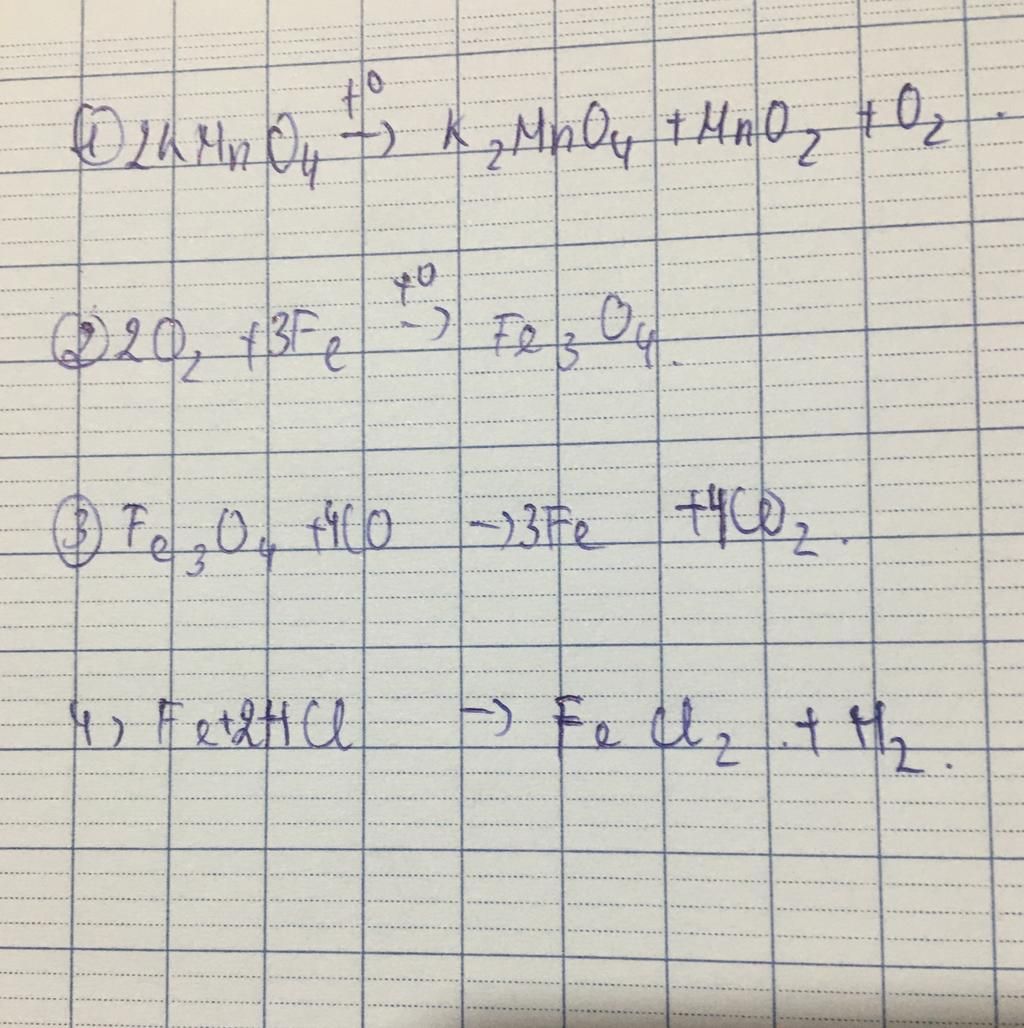 ① 2KMnO₄ →(t⁰) K₂MnO₄ + MnO₂ + O₂.
② 2O₂ + 3Fe →(t⁰) Fe₃O₄.
③ Fe₃O₄ + 4CO → 3Fe + 4CO₂.
4) Fe + 2HCl → FeCl₂ + H₂.